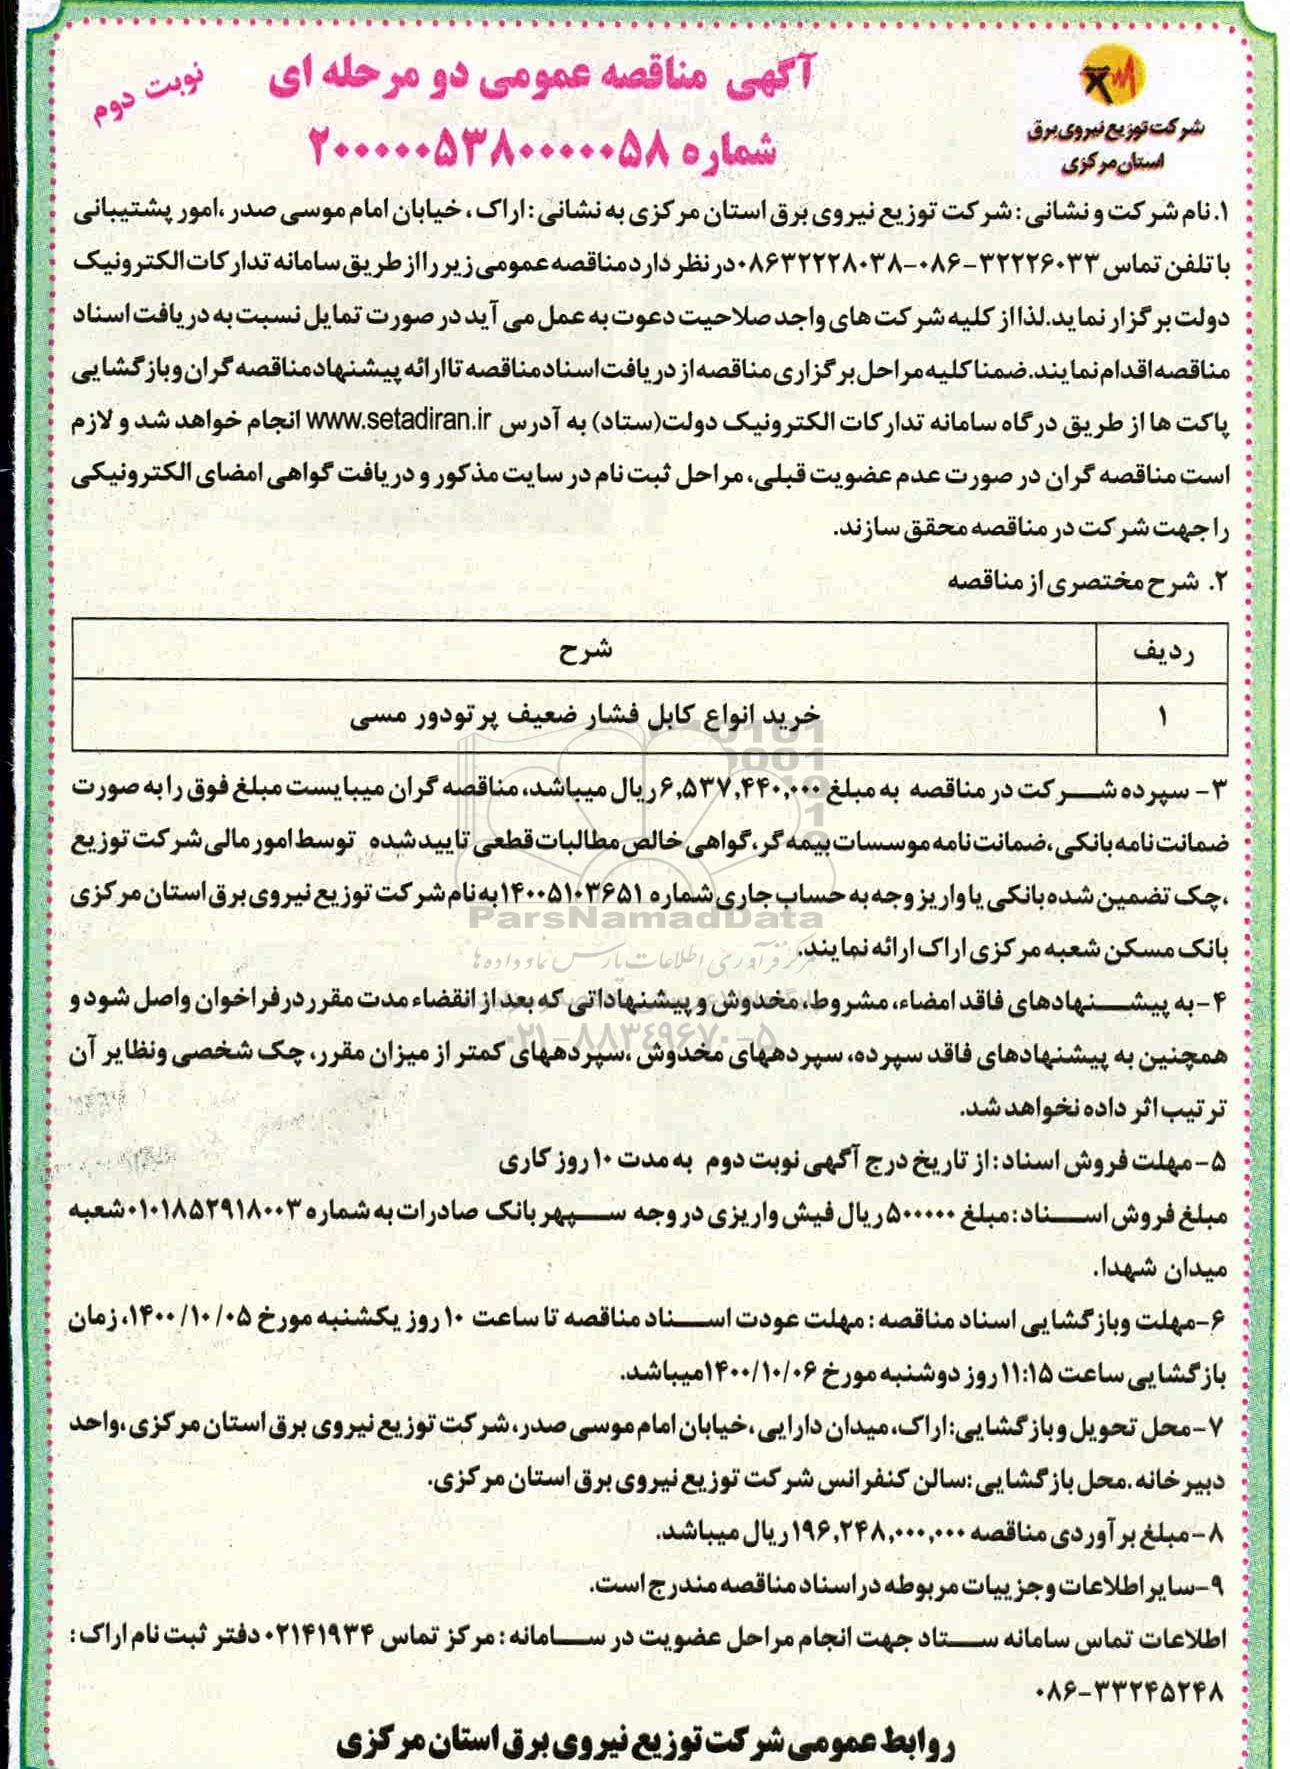 شرکت توزیع نیروی برق
استان مرکزی
آگهی مناقصه عمومی دو مرحله ای
نوبت دوم
شماره ۲۰۰۰۰۰۵۳۸۰۰۰۰۰۵۸
۱. نام شرکت و نشانی : شرکت توزیع نیروی برق استان مرکزی به نشانی : اراک ، خیابان امام موسی صدر ،امور پشتیبانی
با تلفن تماس ۳۲۲۲۶۰۳۳-۰۸۶-۰۸۶۳۲۲۲۸۰۳۸ در نظر دارد مناقصه عمومی زیر را از طریق سامانه تدارکات الکترونیک
دولت برگزار نماید. لذا از کلیه شرکت های واجد صلاحیت دعوت به عمل می آید در صورت تمایل نسبت به دریافت اسناد
مناقصه اقدام نمایند. ضمنا کلیه مراحل برگزاری مناقصه از دریافت اسناد مناقصه تا ارائه پیشنهاد مناقصه گران و بازگشایی
پاکت ها از طریق درگاه سامانه تدارکات الکترونیک دولت (ستاد) به آدرس www.setadiran.ir انجام خواهد شد و لازم
است مناقصه گران در صورت عدم عضویت قبلی، مراحل ثبت نام در سایت مذکور و دریافت گواهی امضای الکترونیکی
را جهت شرکت در مناقصه محقق سازند.
۲. شرح مختصری از مناقصه
ردیف شرح
۱ خرید انواع کابل فشار ضعیف پرتودور مسی
۳- سپرده شرکت در مناقصه به مبلغ ۶,۵۳۷,۴۴۰,۰۰۰ ریال میباشد، مناقصه گران میبایست مبلغ فوق را به صورت
ضمانت نامه بانکی ،ضمانت نامه موسسات بیمه گر، گواهی خالص مطالبات قطعی تایید شده توسط امور مالی شرکت توزیع
،چک تضمین شده بانکی یا واریز وجه به حساب جاری شماره ۱۴۰۰۵۱۰۳۶۵۱ به نام شرکت توزیع نیروی برق استان مرکزی
بانک مسکن شعبه مرکزی اراک ارائه نمایند.
ParsNamadData
مرکز فرآوری اطلاعات پارس نماد داده ها
۰۲۱-۸۸۳۴۹۶۷۰-۵
۴- به پیشنهادهای فاقد امضاء، مشروط، مخدوش و پیشنهاداتی که بعد از انقضاء مدت مقرر در فراخوان واصل شود و
همچنین به پیشنهادهای فاقد سپرده، سپردههای مخدوش ،سپردههای کمتر از میزان مقرر، چک شخصی ونظایر آن
ترتیب اثر داده نخواهد شد.
۵- مهلت فروش اسناد : از تاریخ درج آگهی نوبت دوم به مدت ۱۰ روز کاری
مبلغ فروش اسناد : مبلغ ۵۰۰۰۰۰ ریال فیش واریزی در وجه سپهر بانک صادرات به شماره ۰۱۰۱۸۵۲۹۱۸۰۰۳ شعبه
میدان شهدا.
۶-مهلت وبازگشایی اسناد مناقصه : مهلت عودت اسناد مناقصه تا ساعت ۱۰ روز یکشنبه مورخ ۱۴۰۰/۱۰/۰۵، زمان
بازگشایی ساعت ۱۱:۱۵ روز دوشنبه مورخ ۱۴۰۰/۱۰/۰۶ میباشد.
۷- محل تحویل وبازگشایی: اراک، میدان دارایی ،خیابان امام موسی صدر، شرکت توزیع نیروی برق استان مرکزی ،واحد
دبیرخانه .محل بازگشایی :سالن کنفرانس شرکت توزیع نیروی برق استان مرکزی.
۸- مبلغ برآوردی مناقصه ۱۹۶,۲۴۸,۰۰۰,۰۰۰ ریال میباشد.
۹-سایر اطلاعات وجزییات مربوطه در اسناد مناقصه مندرج است.
اطلاعات تماس سامانه ستاد جهت انجام مراحل عضویت در سامانه : مرکز تماس ۰۲۱۴۱۹۳۴ دفتر ثبت نام اراک :
۰۸۶-۳۳۲۴۵۲۴۸
روابط عمومی شرکت توزیع نیروی برق استان مرکزی